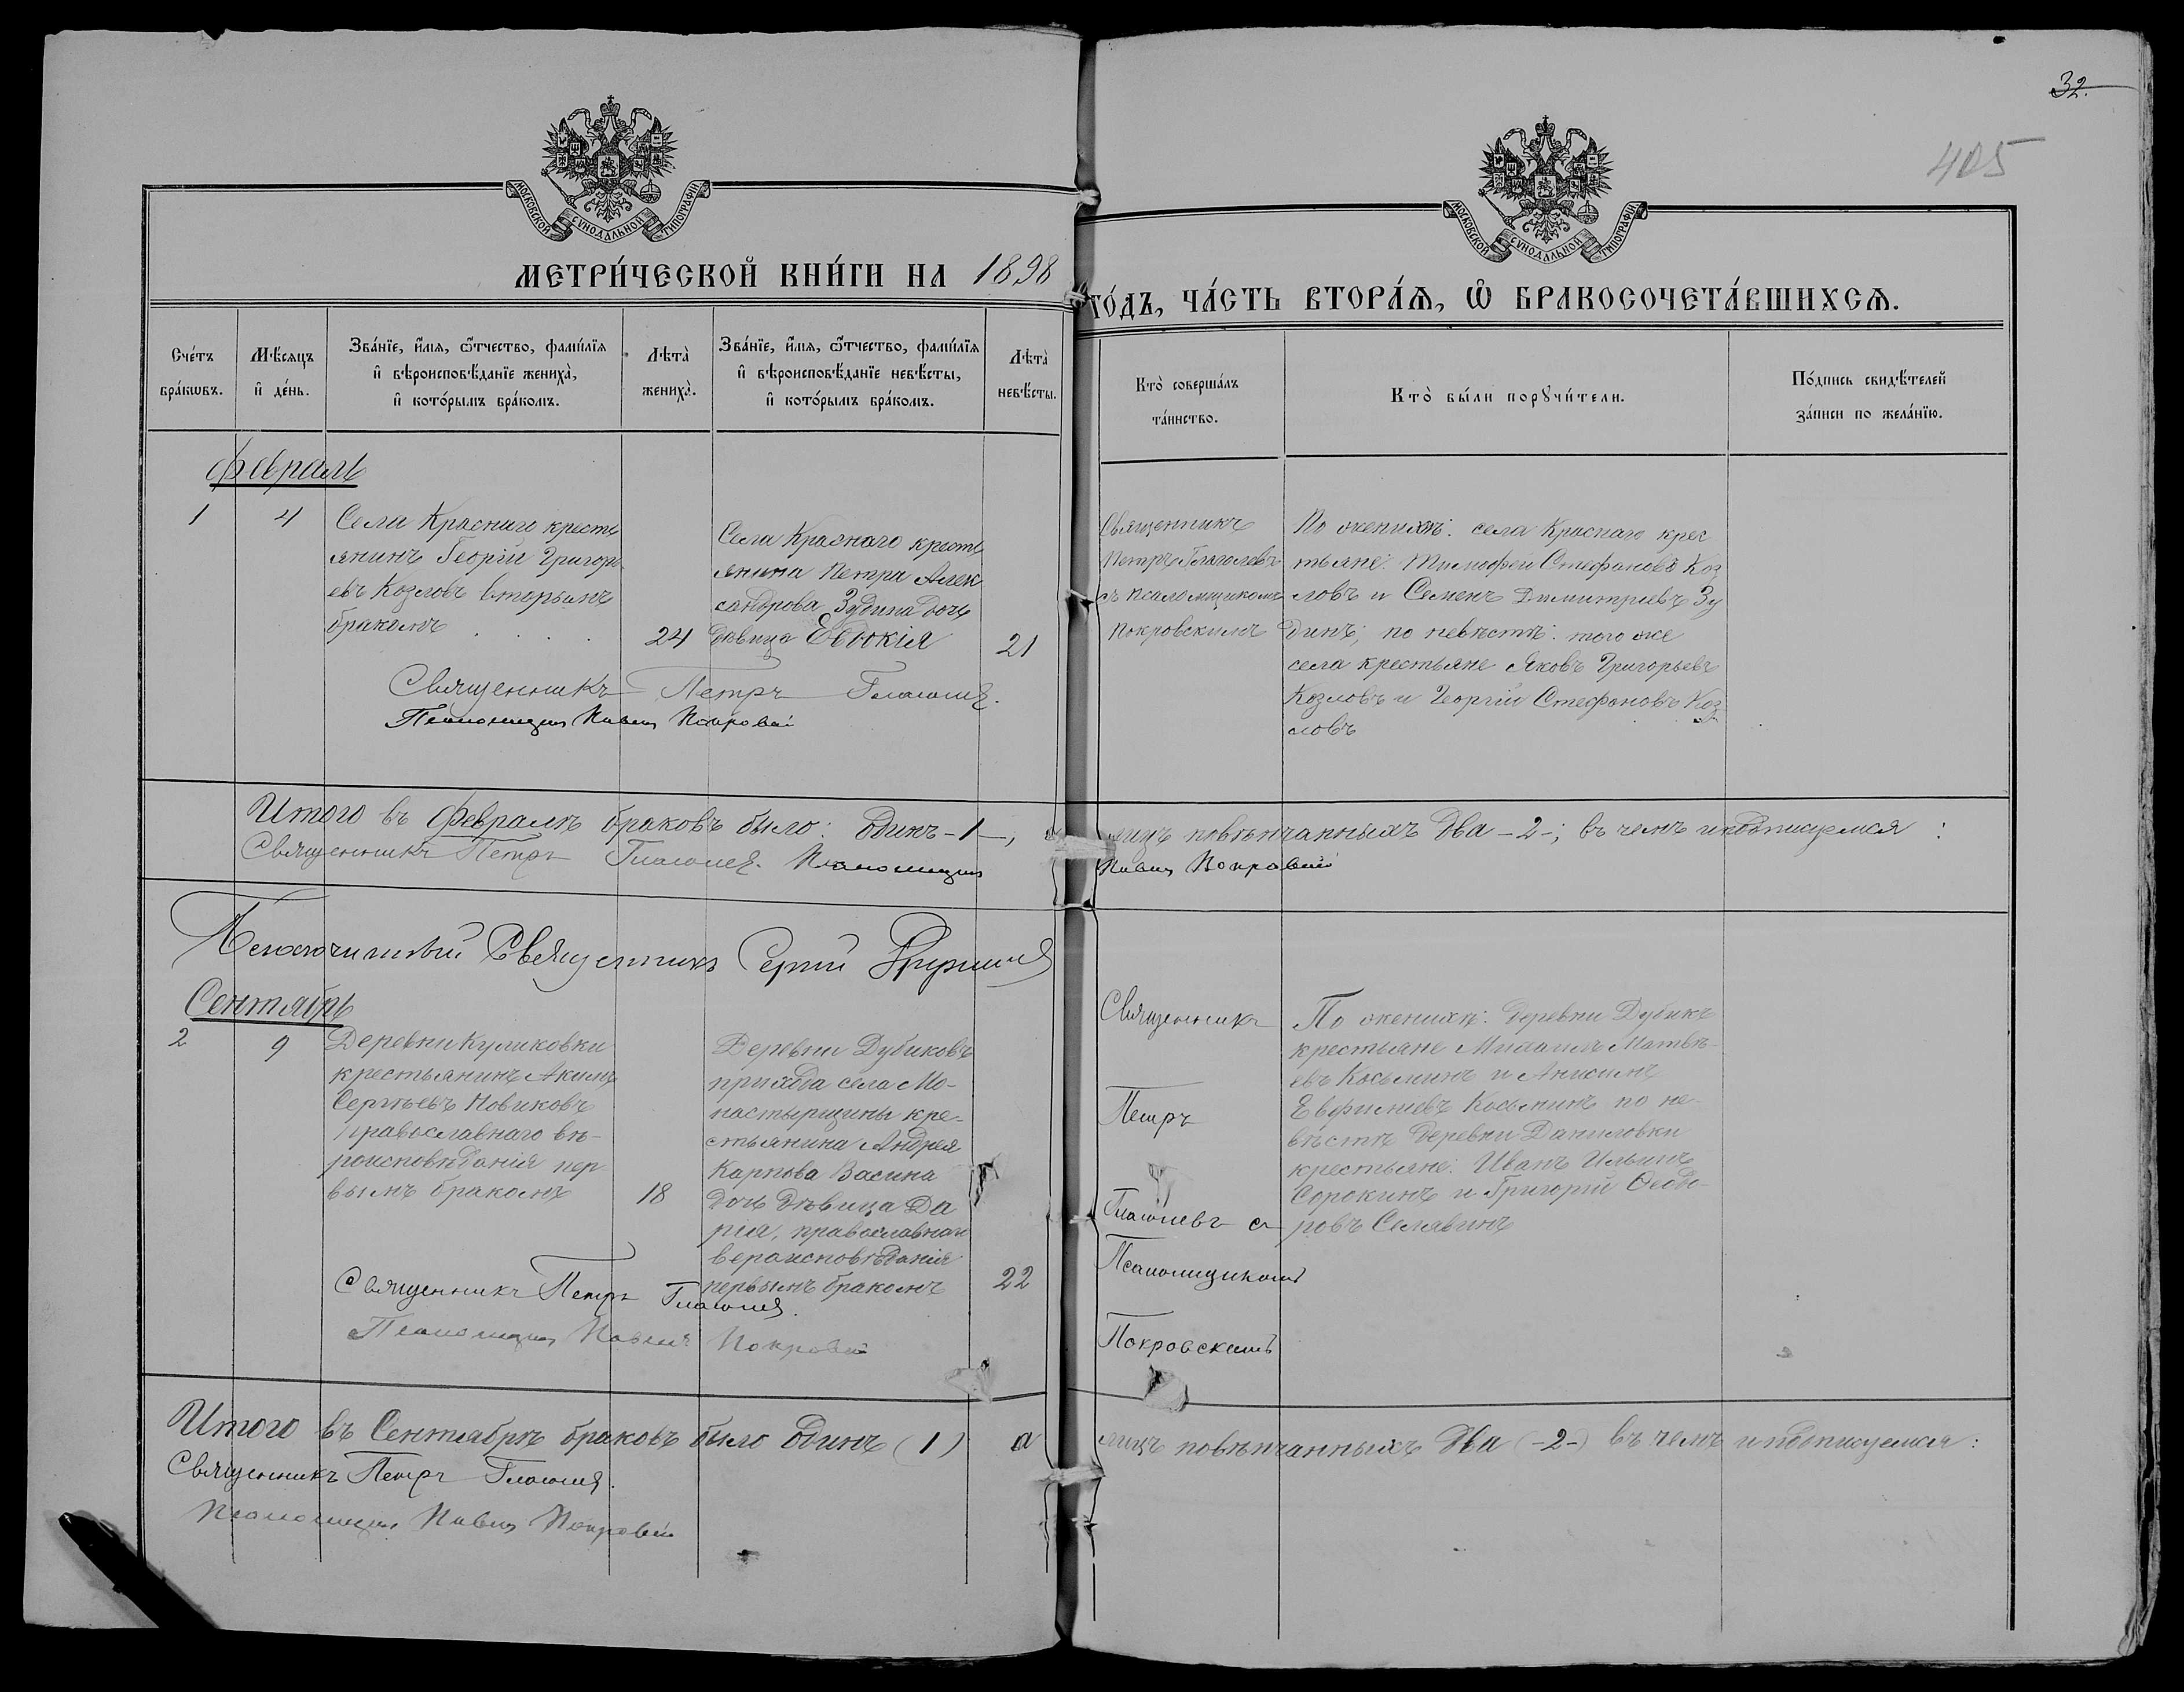 32.
405
МОСКОВСКОЙ СѴНОДАЛЬНОЙ ТИПОГРАФІИ
МОСКОВСКОЙ СѴНОДАЛЬНОЙ ТИПОГРАФІИ
МЕТРИ́ЧЕСКОЙ КНИ́ГИ НА 1898
ГО́ДЪ, ЧА́СТЬ ВТОРА́Ѧ, Ѽ БРАКОСОЧЕТА́ВШИХСѦ.
Сче́тъ
бра́кѡвъ.
Мѣ́сяцъ
и҆ де́нь.
Зва́нїе, и҆́мѧ, ѻ҆́тчество, фами́лїѧ
и҆ вѣроисповѣ́данїе жениха̀,
и҆ кото́рымъ бра́комъ.
Лѣта̀
жениха̀.
Зва́нїе, и҆́мѧ, ѻ҆́тчество, фами́лїѧ
и҆ вѣроисповѣ́данїе невѣ́сты,
и҆ кото́рымъ бра́комъ.
Лѣта̀
невѣ́сты.
Кто̀ соверша́лъ
та́инство.
Кто̀ бы́ли порꙋчи́тели.
По́дпись свидѣ́телей
за́писи по жела́нїю.
Февраль
1
4
Села Краснаго кресть
янинъ Георгій Григорь
евъ Козловъ вторымъ
бракомъ . . . .
24
Села Краснаго кресть
янина Петра Алек
сандрова Зудина дочь
дѣвица Евдокія
21
Священникъ
Петръ Глаголевъ
съ псаломщикомъ
Покровскимъ
По женихѣ: села Краснаго крес
тьяне: Тимофей Стефановъ Коз
ловъ и Семенъ Димитріевъ Зу
динъ; по невѣстѣ: того же
села крестьяне Яковъ Григорьевъ
Козловъ и Георгій Стефановъ Коз
ловъ
Священникъ Петръ Глаголев.
Псаломщикъ Павелъ Покровскій
Итого въ Февралѣ браковъ было: одинъ -1-, а лицъ повѣнчанныхъ два -2-; въ чемъ и подписуемся:
Священникъ Петръ Глаголев. Псаломщикъ Павелъ Покровскій
Священникъ Сергій
Сентябрь
2
9
Деревни Куликовки
крестьянинъ Акимъ
Сергѣевъ Новиковъ
православнаго вѣ-
роисповѣданія пер
вымъ бракомъ
18
Деревни Дубиковъ
прихода села Мо-
настырщины кре-
стьянина Андрея
Карпова Васина
дочь дѣвица Да
рія, православнаго
вероисповѣданія
первымъ бракомъ
22
Священникъ
Петръ
Глаголевъ съ
Псаломщикомъ
Покровскимъ
По женихѣ: деревни Дубикъ
крестьяне Михаилъ Матвѣ-
евъ Косьминъ и Анисимъ
Евфиміевъ Косьминъ по не-
вѣстѣ деревни Даниловки
крестьяне: Иванъ Ильинъ
Сорокинъ и Григорій Ѳеодо-
ровъ Селявинъ
Священникъ Петръ Глаголев.
Псаломщикъ Павелъ Покровскій
Итого въ Сентябрѣ браковъ было одинъ (1) а лицъ повѣнчанныхъ два (-2-) въ чемъ и подписуемся:
Священникъ Петръ Глаголев.
Псаломщикъ Павелъ Покровскій